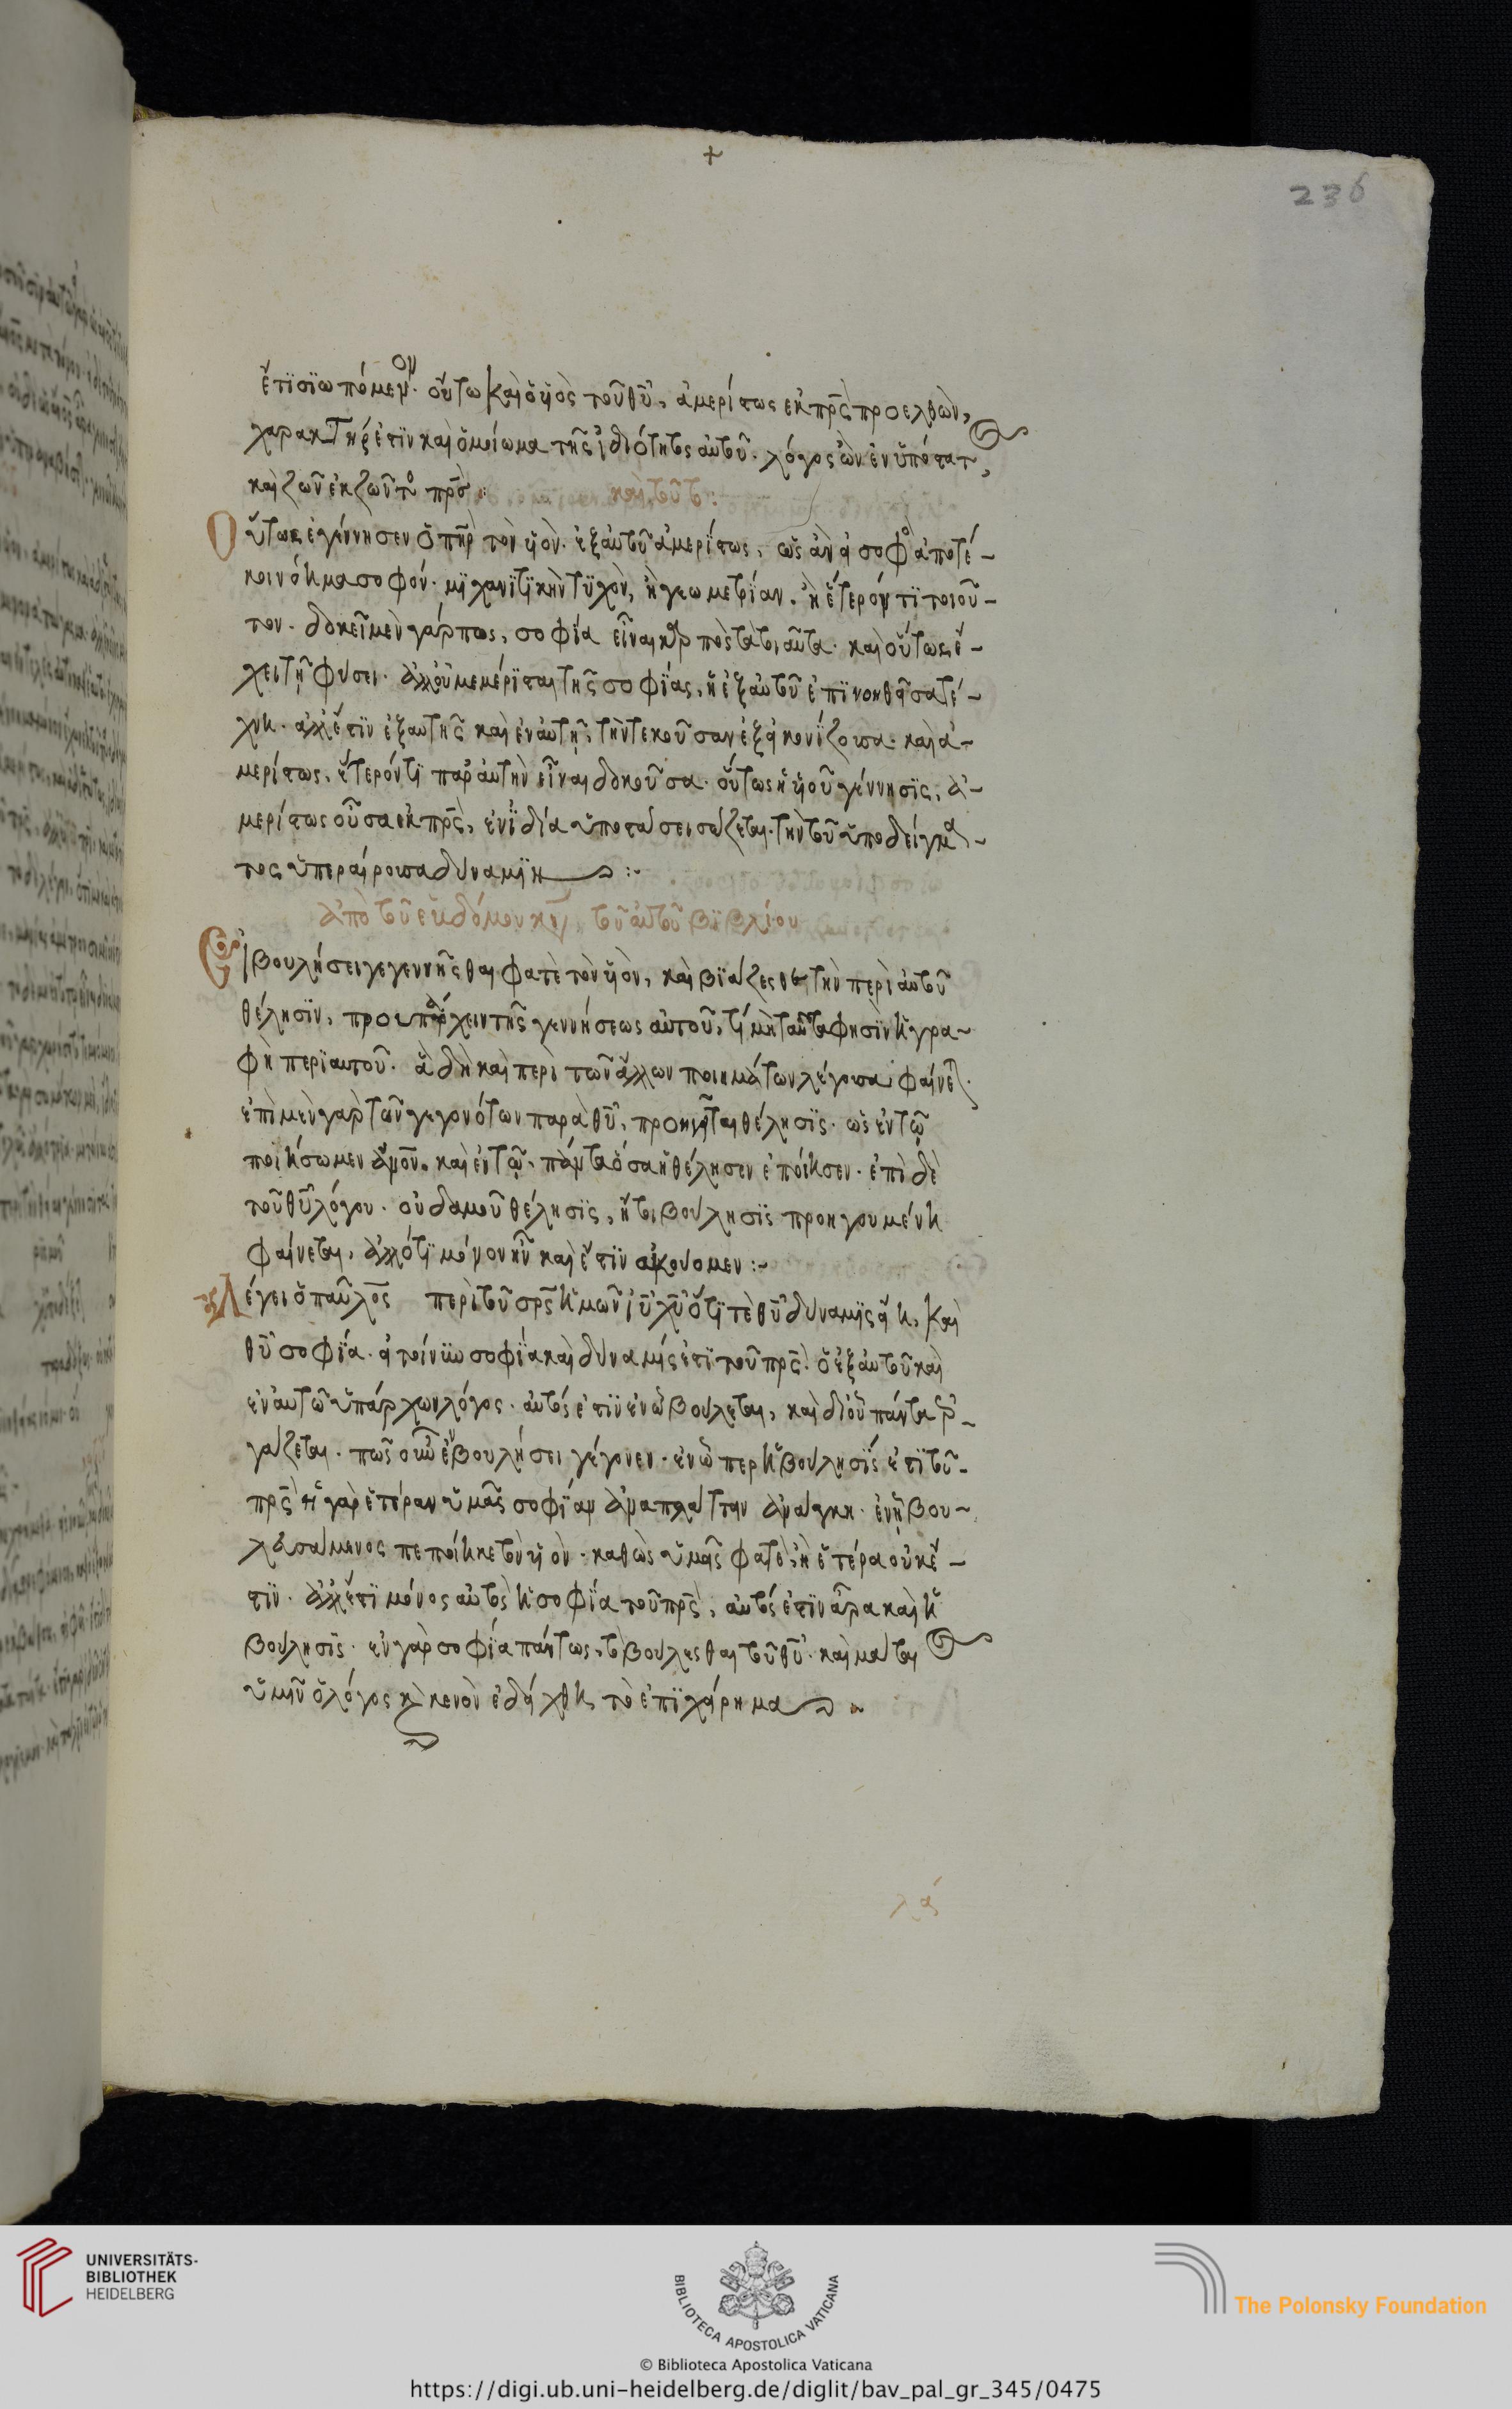 +
236
ἔτι σιωπώμενον. οὕτω καὶ ὁ υἱὸς τοῦ θυ, ἀμερίστως ἐκ πρς προελθὼν,
χαρακτήρ ἐστιν καὶ ὁμοίωμα τῆς ἰδιότητος αὐτοῦ. λόγος ὢν ἐνυπόστατ,
καὶ ζῶν ἐκ ζῶντος πρσ.
καὶ τοῦτο:
Οὕτως ἐγέννησεν ὁ πηρ τὸν υἱὸν. ἐξ αὐτοῦ ἀμερίστως, ὡς ἂν εἰ σοφὸς ἀποτέ-
κοι νόημα σοφόν. μηχανιτικὴν τυχὸν, ἢ γεωμετρίαν. ἢ ἕτερόν τι τοιοῦ-
τον. δοκεῖ μὲν γάρ πως, σοφία εἶναι πρὸς τὰ τοιαῦτα. καὶ οὕτως ἔ-
χει τῇ φύσει. ἀλλ' οὐ μεμέρισται τῆς σοφίας, ἡ ἐξ αὐτοῦ ἐπινοηθεῖσα τέ-
χνη. ἀλλ' ἔστιν ἐξ αὐτῆς καὶ ἐν αὐτῇ, τὴν τεκοῦσαν ἐξεικονίζουσα. καὶ ἀ-
μερίστως, ἕτερόν τι παρ' αὐτὴν εἶναι δοκοῦσα. οὕτως ἡ υἱοῦ γέννησις, ἀ-
μερίστως οὖσα ἐκ πρς, ἐν ἰδία ὑποστάσει σώζεται. τὴν τοῦ ὑποδείγμα-
τος ὑπεραίρουσα δύναμιν :-
ἀπὸ τοῦ ἑβδόμου κεφ, τοῦ αὐτοῦ βιβλίου
Εἰ βουλήσει γεγεννῆσθαι φατὲ τὸν υἱὸν, καὶ βιάζεσθε τὴν περὶ αὐτοῦ
θέλησιν, προυπάρχειν τῆς γεννήσεως αὐτοῦ, τί μὴ ταῦτα φησὶν ἡ γρα-
φὴ περὶ αυτοῦ. ἃ δὴ καὶ περὶ τῶν ἄλλων ποιημάτων λέγουσα φαίνετ.
ἐπὶ μὲν γὰρ τῶν γεγονότων παρὰ θυ, προηγεῖται θέλησις. ὡς ἐν τῷ
ποιήσωμεν ἄνον. καὶ ἐν τῷ, πάντα ὅσα ἠθέλησεν ἐποίησεν. ἐπὶ δὲ
τοῦ θυ λόγου. οὐδαμοῦ θέλησις, ἤτοι βούλησις προηγουμένη
φαίνεται, ἀλλ' ὅτι μόνον ἦν καὶ ἔστιν ἀκούομεν :-
Λέγει ὁ παῦλος περὶ τοῦ σρς ἡμῶν ιυ χυ ὅτι τὲ θυ δύναμις εἴη, καὶ
θυ σοφία. εἰ τοίνυν σοφία καὶ δύναμίς ἐστι τοῦ πρς. ὁ ἐξ αὐτοῦ καὶ
ἐν αὐτῶ ὑπάρχων λόγος. αὐτός ἐστιν ἐν ὧ βούλεται, καὶ δι' οὗ πάντα ἐρ-
γάζεται. πῶς οὖν ἐν βουλήσει γέγονεν. ἐν ὧπερ ἡ βούλησίς ἐστι τοῦ
πρς ἢ γὰρ ἑτέραν ὑμᾶς σοφίαν ἀναπλάττειν ἀνάγκη. ἐν ᾗ βου-
λευσάμενος πεποίηκε τὸν υἱὸν. καθὼς ὑμεῖς φατὲ, ἢ ἑτέρα οὐκ ἔ-
στιν. ἀλλ' ἔστι μόνος αὐτὸς ἡ σοφία τοῦ πρς, αὐτός ἐστιν ἄρα καὶ ἡ
βούλησις. ἐν γὰρ σοφία πάντως, τὸ βούλεσθαι τοῦ θυ. καὶ μάται
ὑμῖν ὁ λόγος καὶ κενὸν ἐδείχθη τὸ ἐπιχείρημα
λα
UNIVERSITÄTS-
BIBLIOTHEK
HEIDELBERG
BIBLIOTECA APOSTOLICA VATICANA
The Polonsky Foundation
© Biblioteca Apostolica Vaticana
https://digi.ub.uni-heidelberg.de/diglit/bav_pal_gr_345/0475